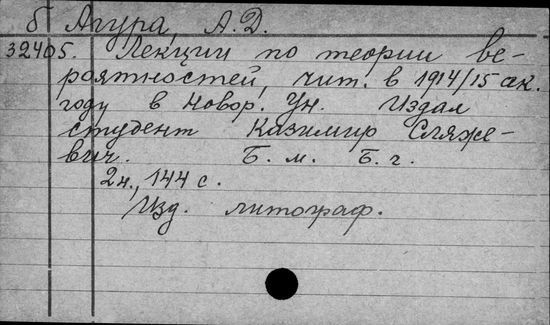 б Агура, А. Д.
32405. Лекции по теории ве-
роятностей, чит. в 1914/15 ак.
году в Новор. Ун. Издал
студент Казимир Сляже-
вич. Б. м. Б. г.
2 н., 144 с.
Изд. литограф.